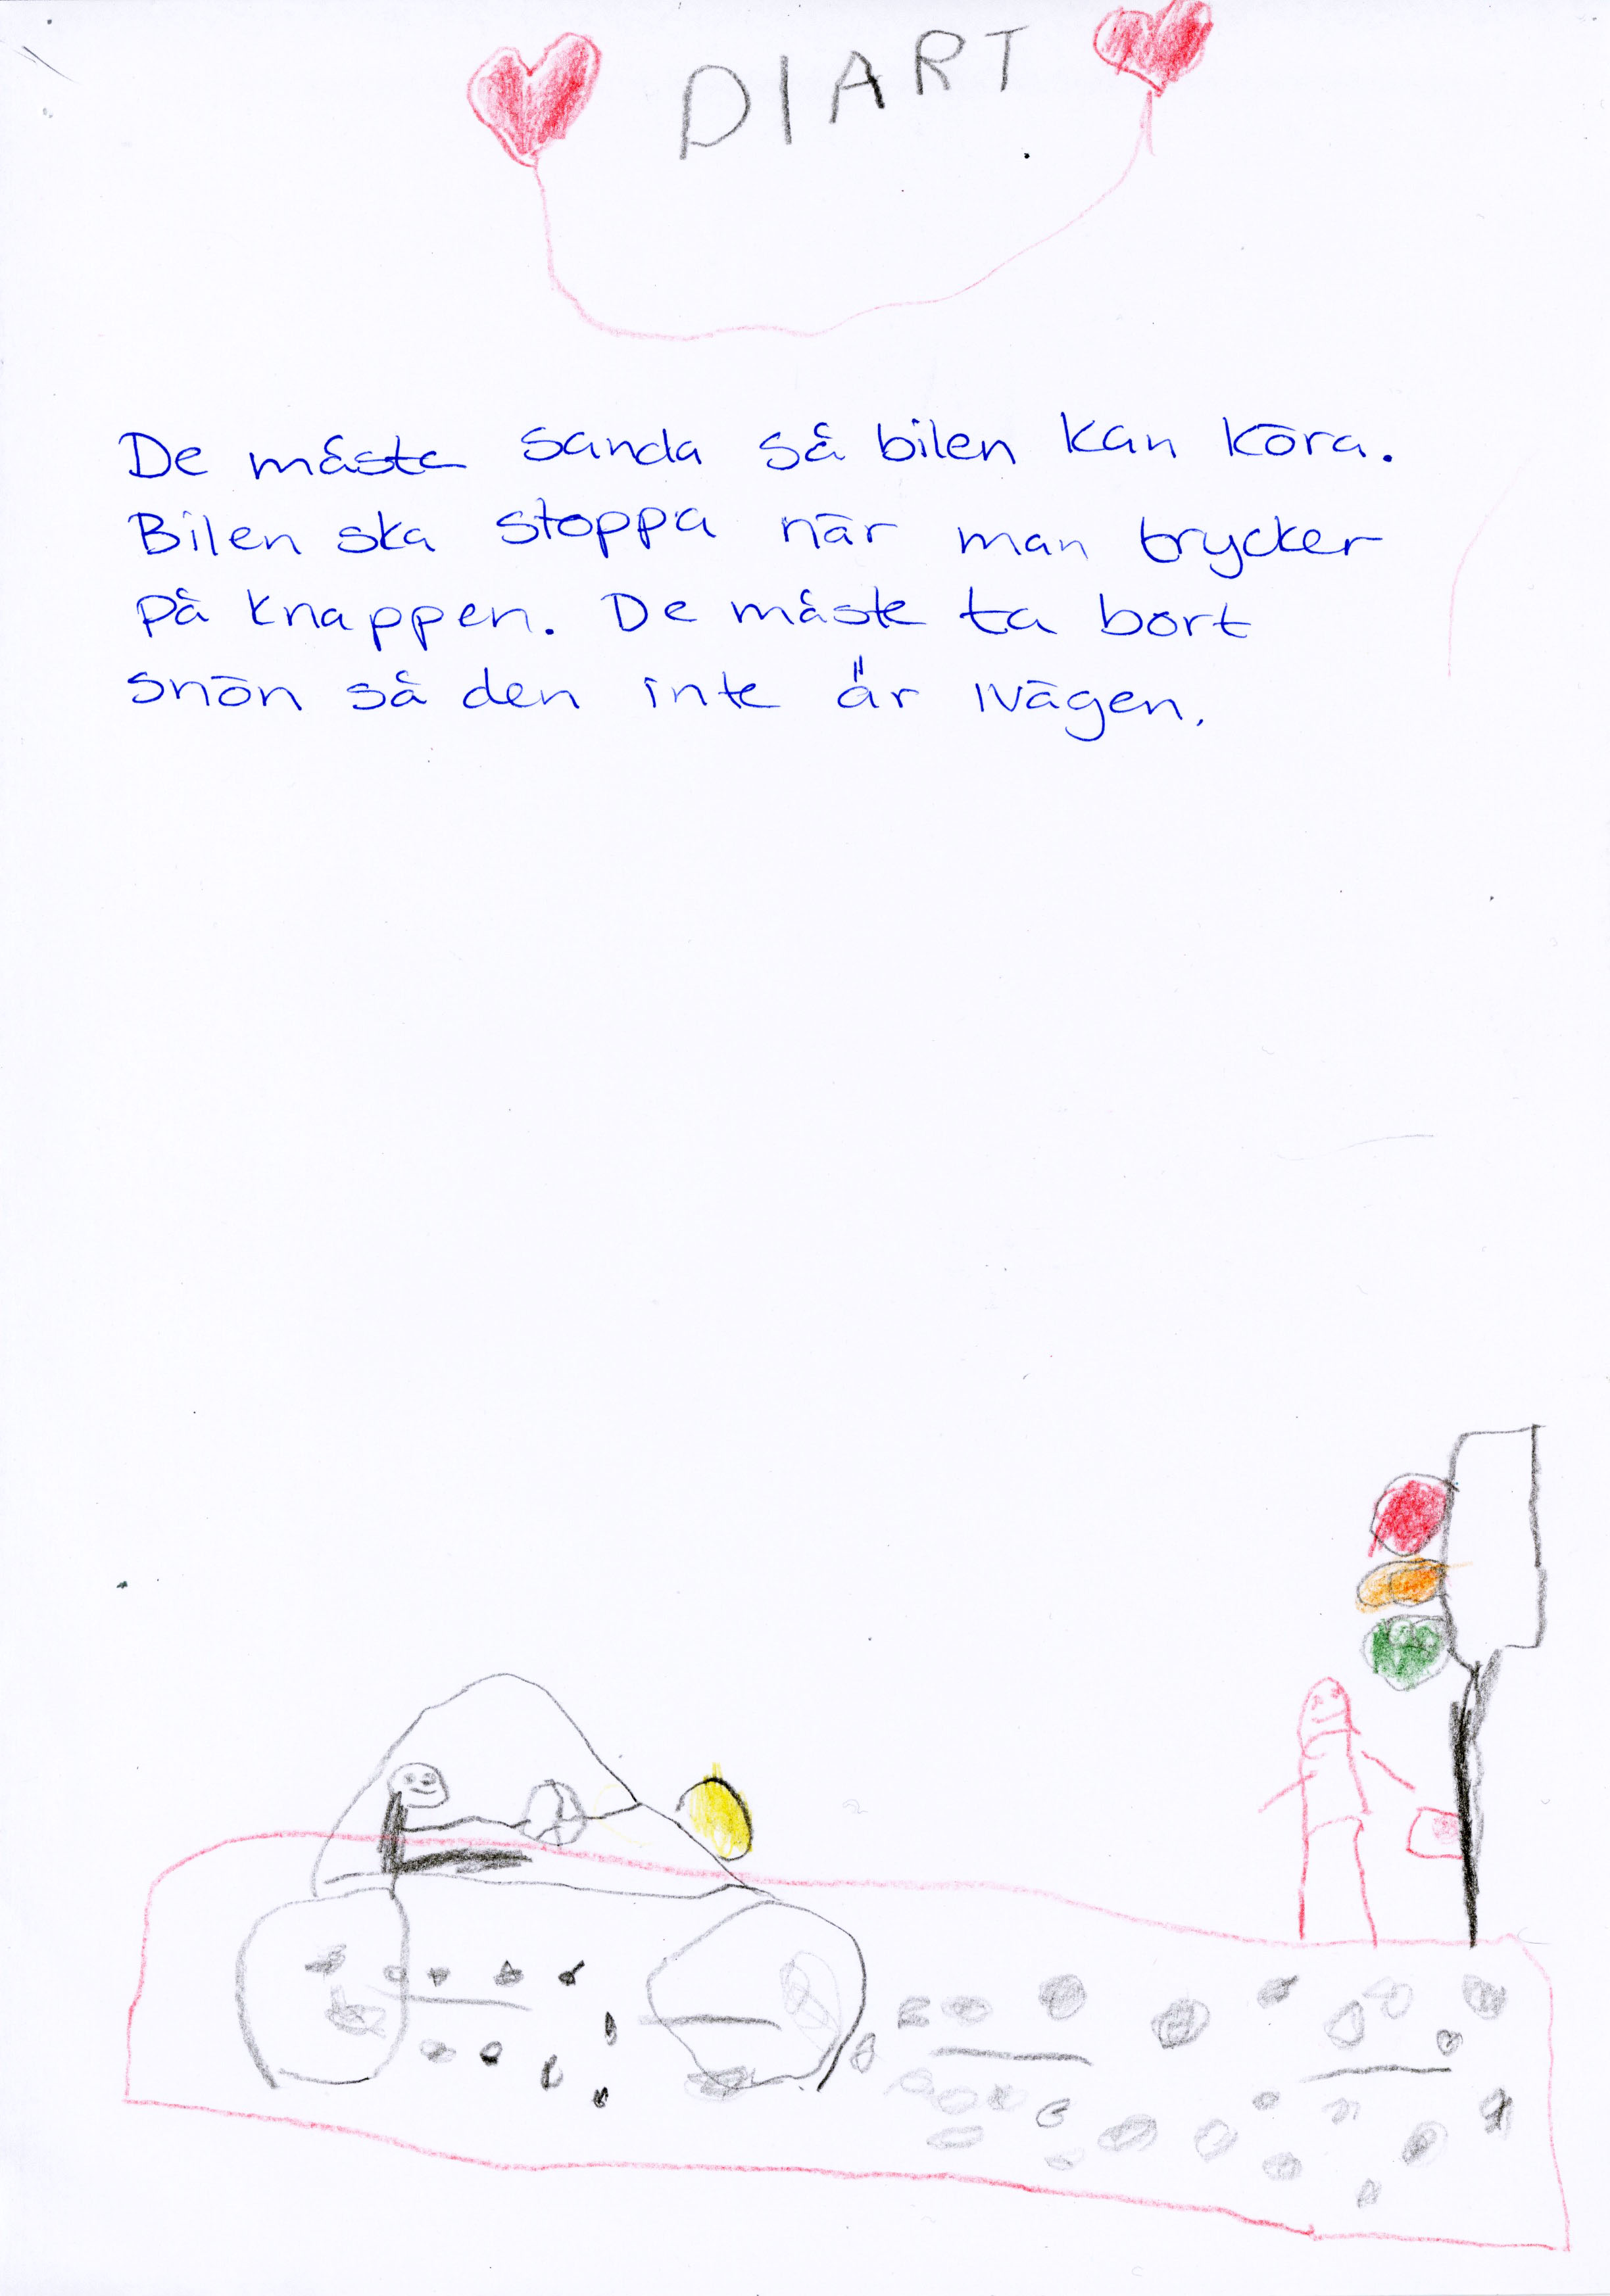 DIART
De måste sanda så bilen kan köra.
Bilen ska stoppa när man trycker
på knappen. De måste ta bort
snön så den inte är ivägen.